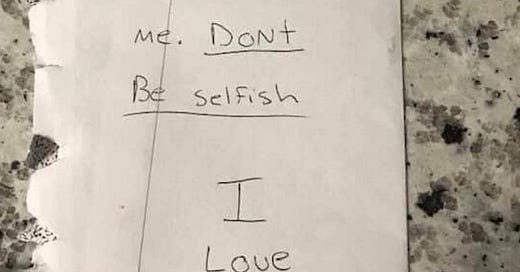 me. DONt
Be selfish
I
Love